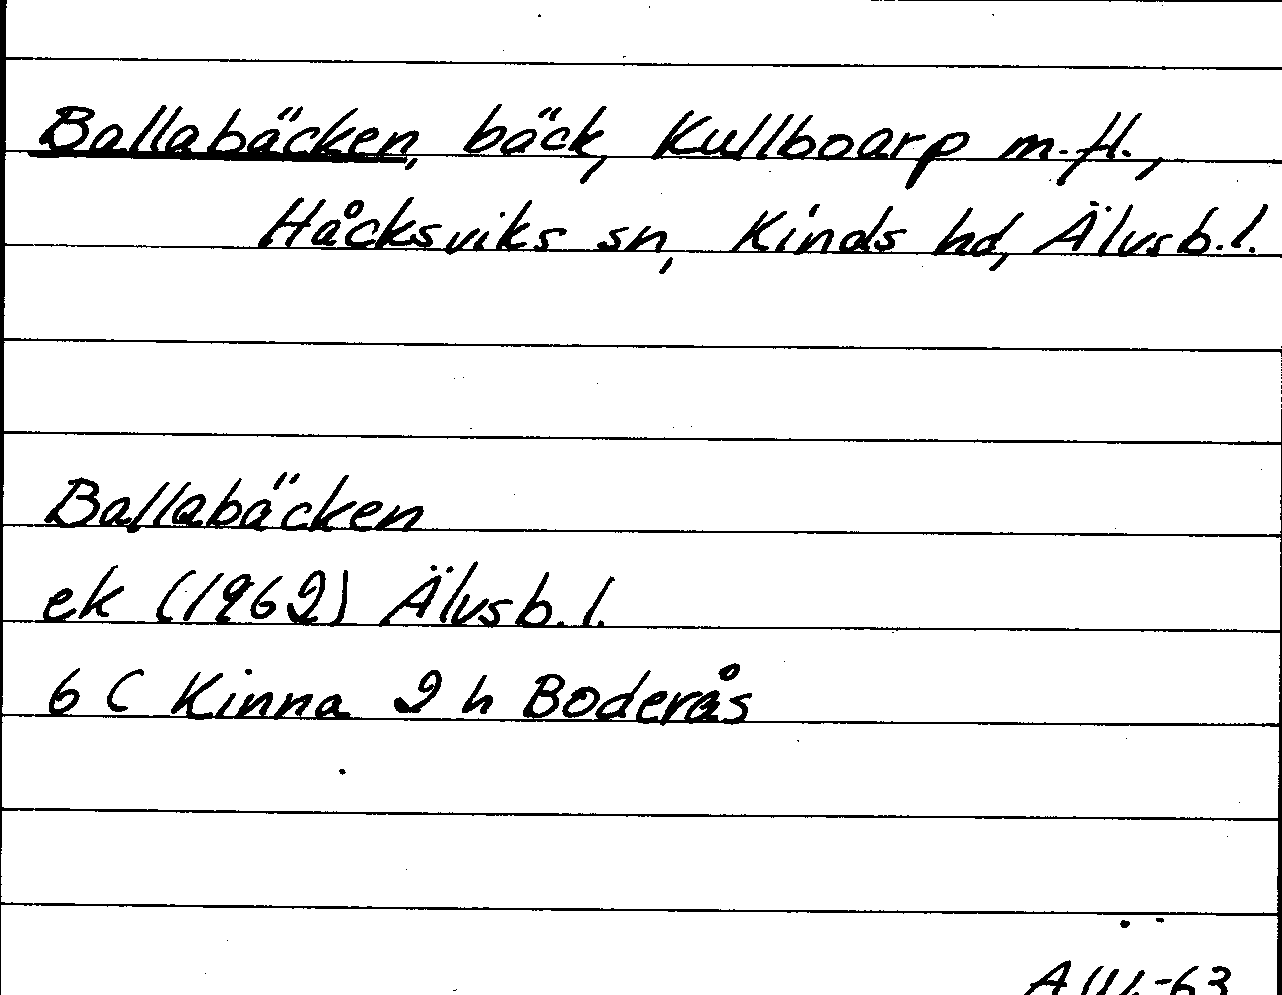 Ballabäcken, bäck, Kullboarp m.fl.,
Håcksviks sn, Kinds hd, Älvsb.l.
Ballabäcken
ek (1962) Älvsb.l.
6 C Kinna 2 h Boderås